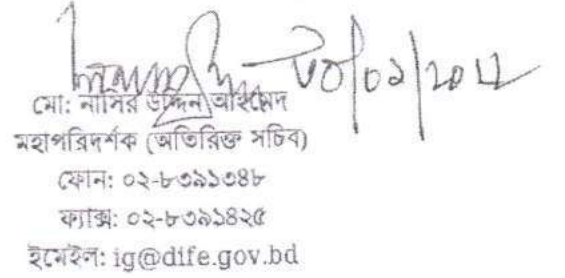 মো: নাসির উদ্দিন আহমেদ
মহাপরিদর্শক (অতিরিক্ত সচিব)
ফোন: ০২-৮৩৯১৩৪৮
ফ্যাক্স: ০২-৮৩৯১৪২৫
ইমেইল: ig@dife.gov.bd